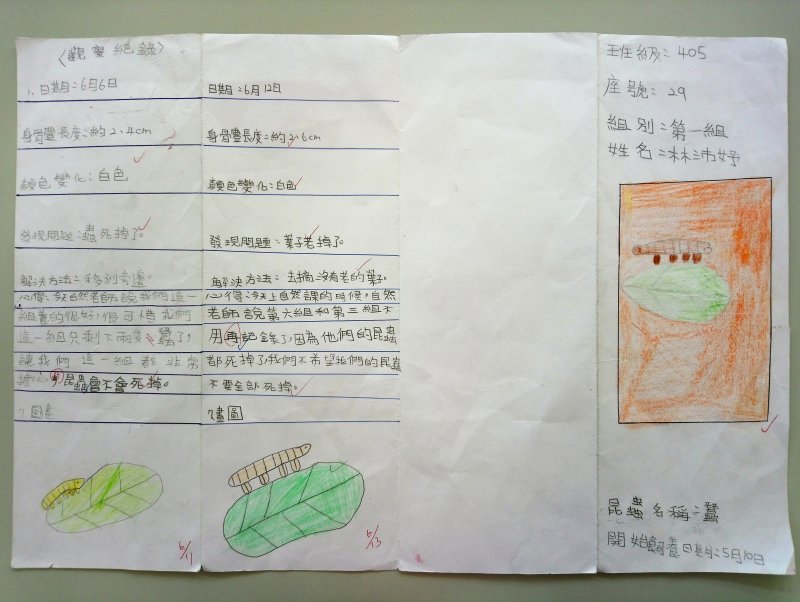 〈觀察紀錄〉
1、日期：6月6日
身體長度：約2.4cm
顏色變化：白色
發現問題：蟲死掉了。
解決方法：移到旁邊。
心得：今天自然老師說我們這一
組養的很好，很可惜我們
這一組只剩下兩隻蠶了，
讓我們這一組都非常
擔心，昆蟲會不會死掉。
7圖畫
6/11
日期：6月12日
身體長度：約2.6cm
顏色變化：白色
發現問題：葉子老掉了。
解決方法：去摘沒有老的葉子。
心得：今天上自然課的時候，自然
老師說第六組和第三組不
用再記錄了，因為他們的昆蟲
都死掉了，我們不希望我們的昆蟲
不要全部死掉。
7畫圖
6/13
班級：405
座號：29
組別：第一組
姓名：林沛妤
昆蟲名稱：蠶
開始飼養日期：5月10日